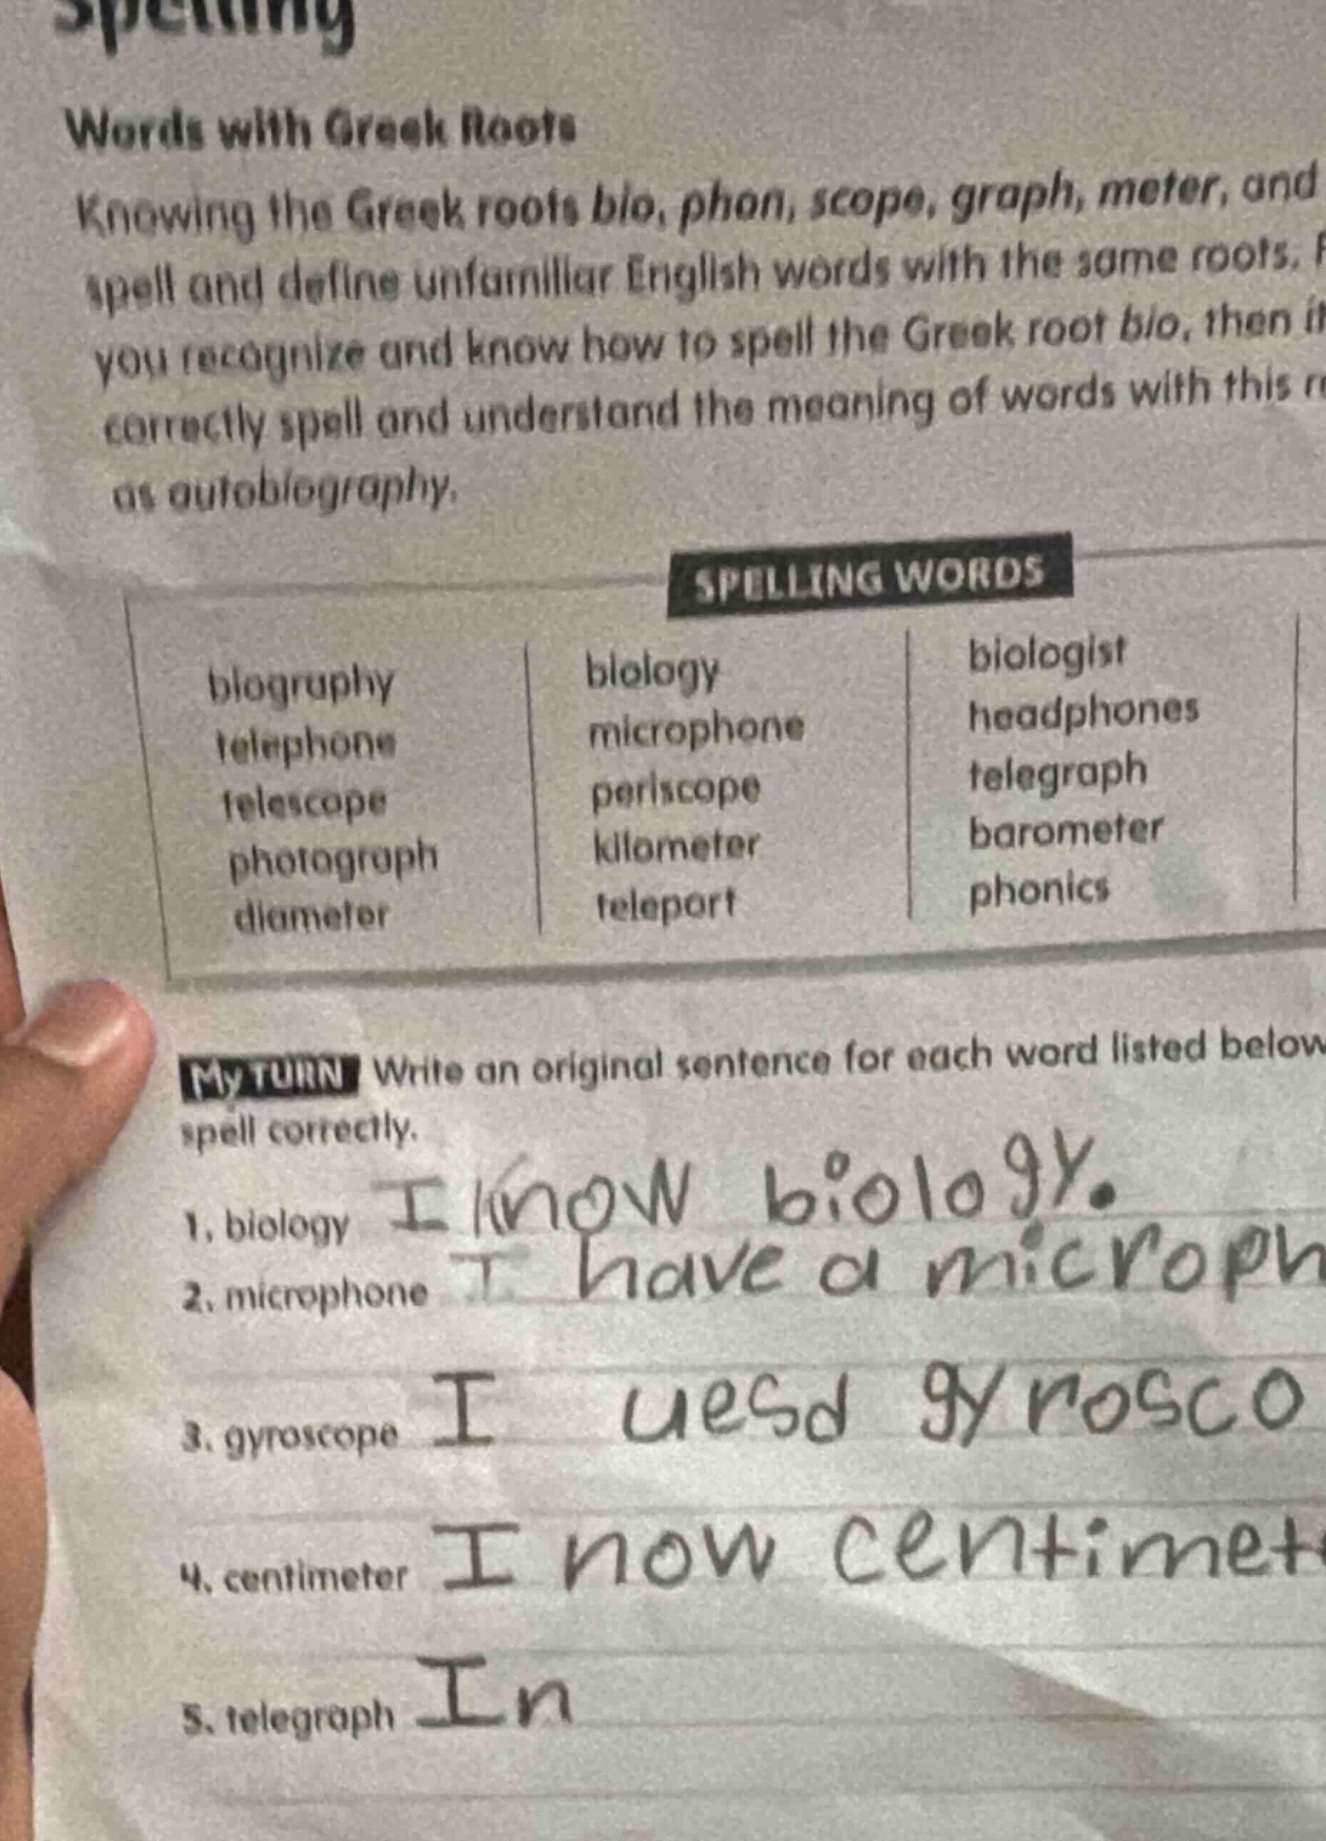 Spelling
Words with Greek Roots
Knowing the Greek roots bio, phon, scope, graph, meter, and
spell and define unfamiliar English words with the same roots.
you recognize and know how to spell the Greek root bio, then
correctly spell and understand the meaning of words with this
as autobiography.
SPELLING WORDS
biography biology biologist
telephone microphone headphones
telescope periscope telegraph
photograph kilometer barometer
diameter teleport phonics
My TURN Write an original sentence for each word listed below
spell correctly.
1. biology I know biology.
2. microphone I have a microph
3. gyroscope I uesd gyrosco
4. centimeter I now centimet
5. telegraph In